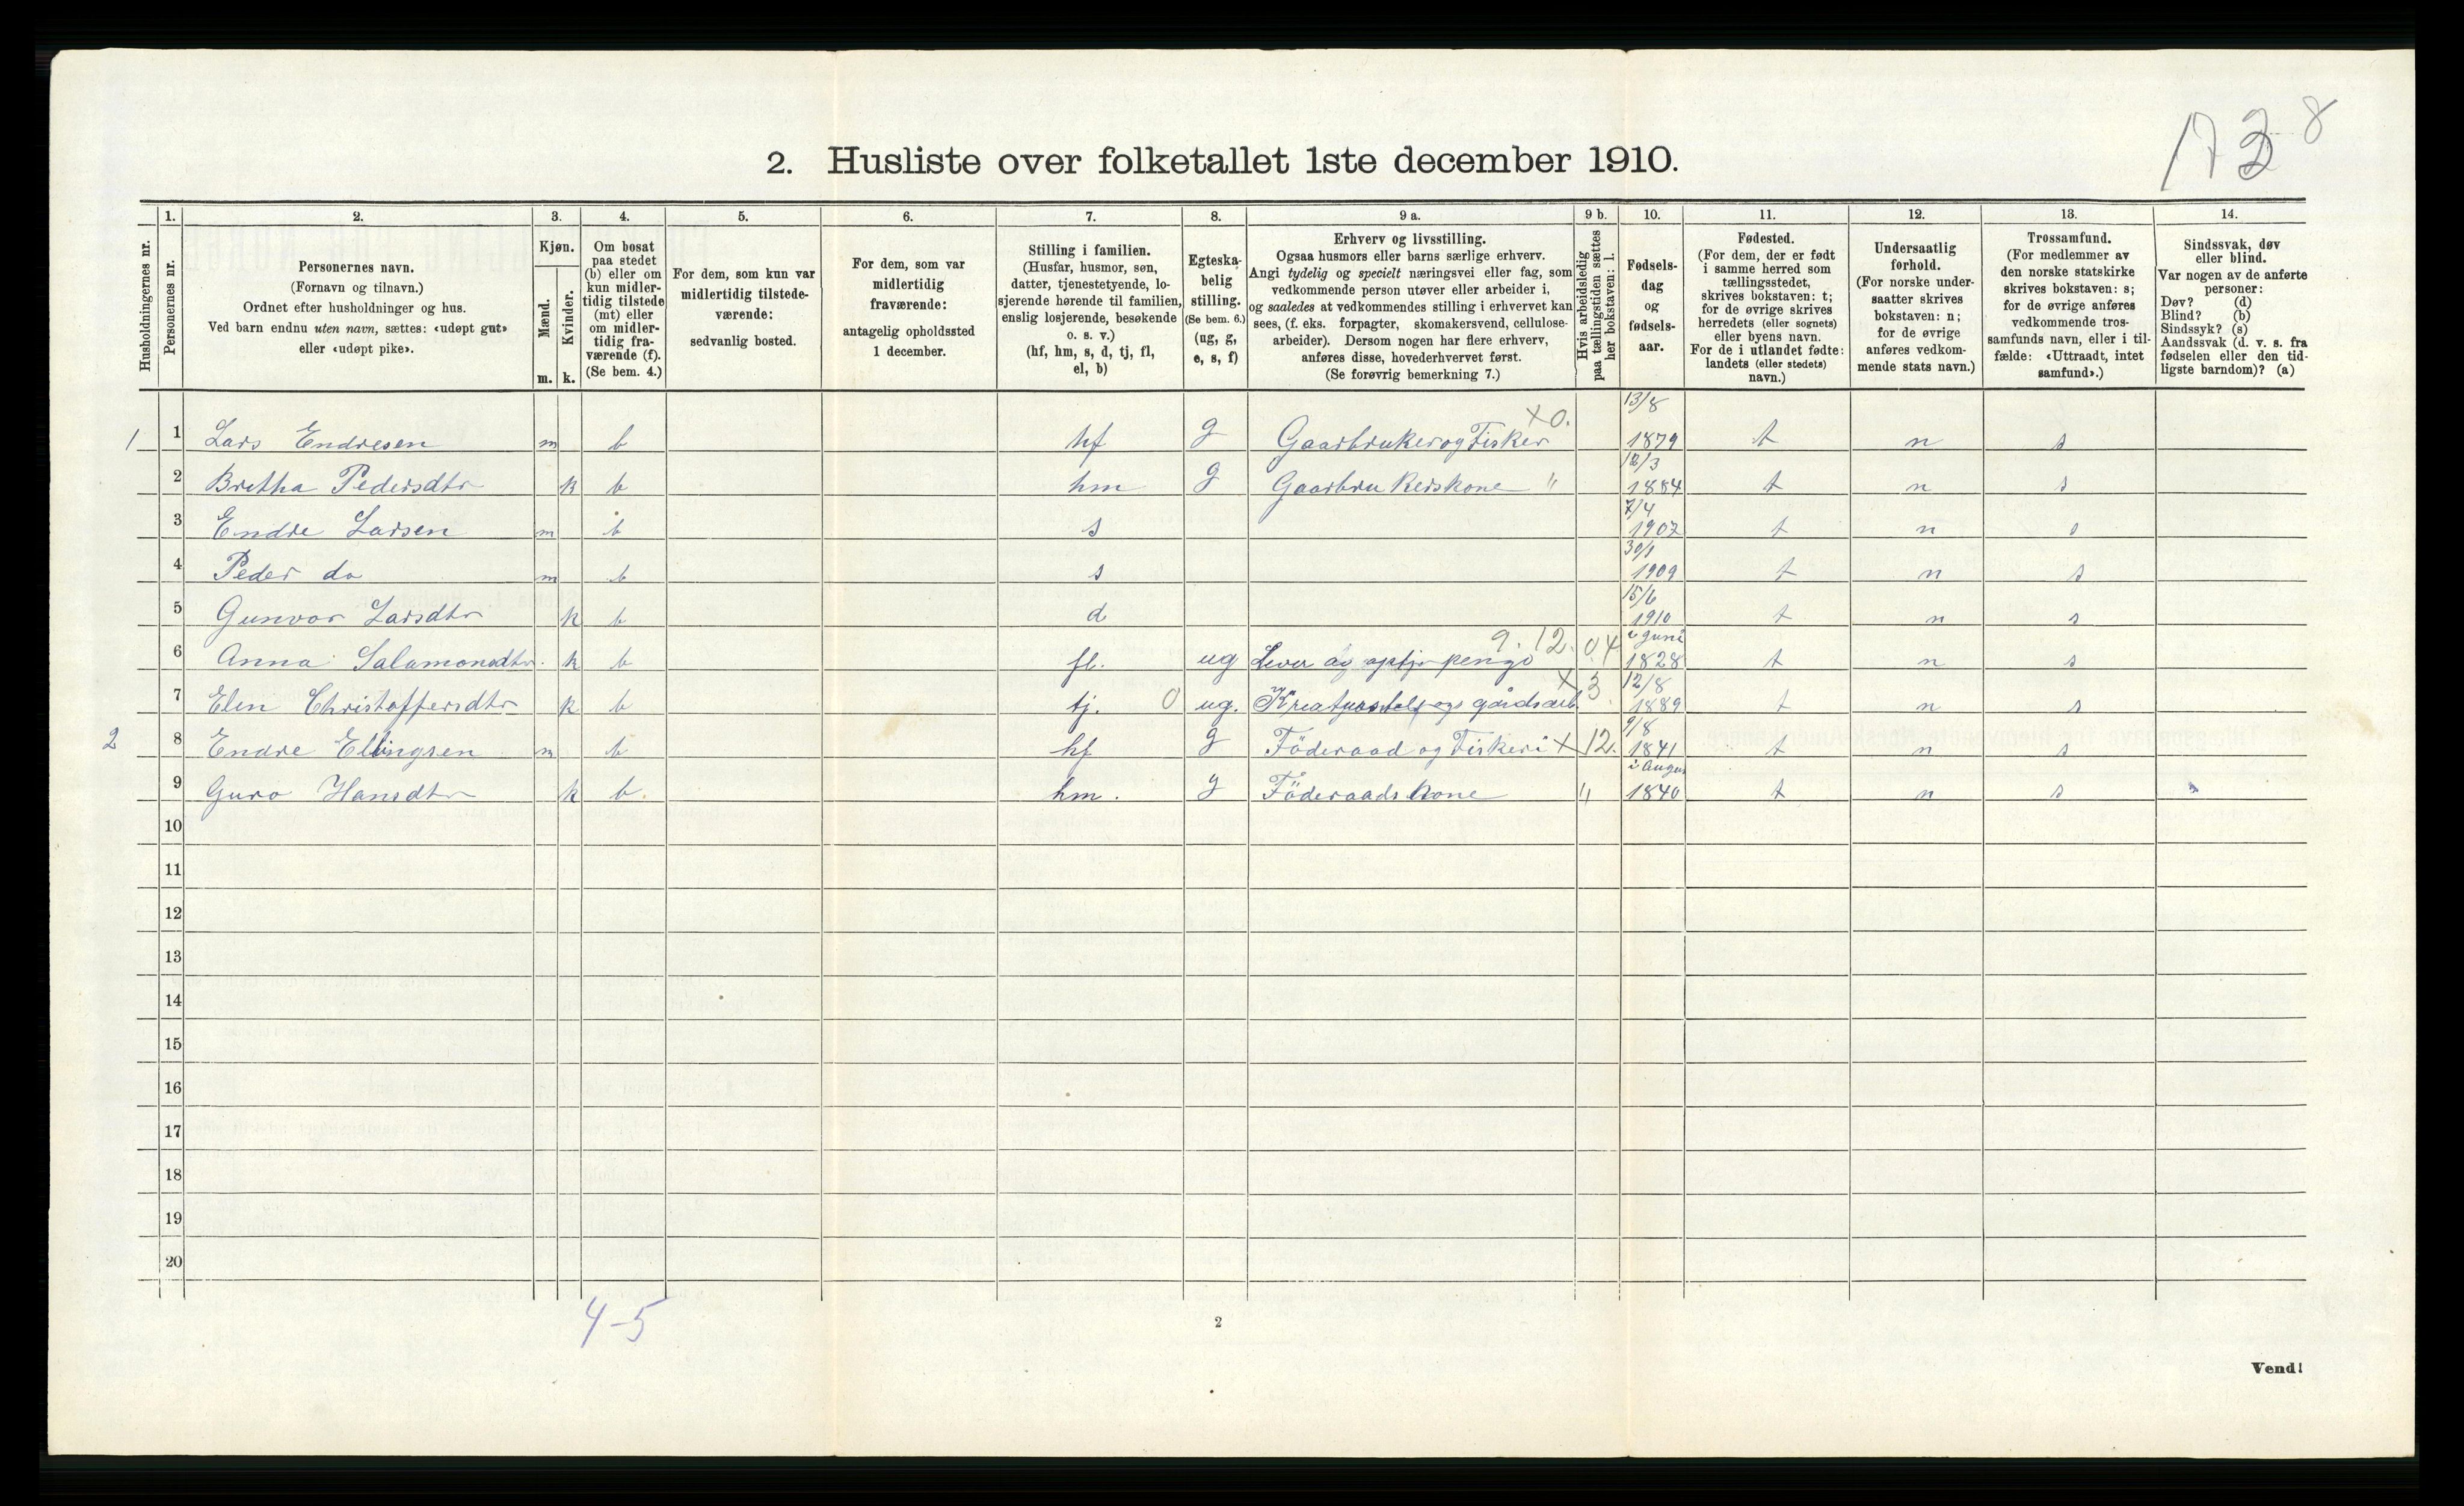 1738
2. Husliste over folketallet 1ste december 1910.
Husholdningernes nr.
1. Personernes nr.
2. Personernes navn.
(Fornavn og tilnavn.)
Ordnet efter husholdninger og hus.
Ved barn endnu uten navn, sættes: «udøpt gut»
eller «udøpt pike».
3. Kjøn.
Mænd. m.
Kvinder. k.
4. Om bosat
paa stedet
(b) eller om
kun midler-
tidig tilstede
(mt) eller
om midler-
tidig fra-
værende (f).
(Se bem. 4.)
5. For dem, som kun var
midlertidig tilstede-
værende:
sedvanlig bosted.
6. For dem, som var
midlertidig
fraværende:
antagelig opholdssted
1 december.
7. Stilling i familien.
(Husfar, husmor, søn,
datter, tjenestetyende, lo-
sjerende hørende til familien,
enslig losjerende, besøkende
o. s. v.)
(hf, hm, s, d, tj, fl,
el, b)
8. Egteska-
belig
stilling.
(Se bem. 6.)
(ug, g,
e, s, f)
9 a. Erhverv og livsstilling.
Ogsaa husmors eller barns særlige erhverv.
Angi tydelig og specielt næringsvei eller fag, som
vedkommende person utøver eller arbeider i,
og saaledes at vedkommendes stilling i erhvervet kan
sees, (f. eks. forpagter, skomakersvend, cellulose-
arbeider). Dersom nogen har flere erhverv,
anføres disse, hovederhvervet først.
(Se forøvrig bemerkning 7.)
9 b. Hvis arbeidsledig
paa tællingstiden sættes
her bokstaven: l.
10. Fødsels-
dag
og
fødsels-
aar.
11. Fødested.
(For dem, der er født
i samme herred som
tællingsstedet,
skrives bokstaven: t;
for de øvrige skrives
herredets (eller sognets)
eller byens navn.
For de i utlandet fødte:
landets (eller stedets)
navn.)
12. Undersaatlig
forhold.
(For norske under-
saatter skrives
bokstaven: n;
for de øvrige
anføres vedkom-
mende stats navn.)
13. Trossamfund.
(For medlemmer av
den norske statskirke
skrives bokstaven: s;
for de øvrige anføres
vedkommende tros-
samfunds navn, eller i til-
fælde: «Uttraadt, intet
samfund».)
14. Sindssvak, døv
eller blind.
Var nogen av de anførte
personer:
Døv? (d)
Blind? (b)
Sindssyk? (s)
Aandssvak (d. v. s. fra
fødselen eller den tid-
ligste barndom)? (a)
1 1 Lars Endresen m b hf g Gaarbruker og Fisker x0. 13/8 1879 t n s
2 Bretha Pedersdtr k b hm g Gaarbrukerskone " 12/3 1884 t n s
3 Endre Larsen m b s 7/4 1907 t n s
4 Peder do m b s 30/1 1909 t n s
5 Gunvor Larsdtr k b d 15/6 1910 t n s
6 Anna Salamonsdtr. k b fl. ug Lever av penge 9.12.04 i Juni 1828 t n s
7 Elen Christoffersdtr k b tj. 0 ug. x 3 12/8 1889 t n s
2 8 Endre Ellingsen m b hf g Föderaad og Fiskeri x 12. 9/8 1841 t n s
9 Guro Hansdtr k b. hm. g Föderaads kone " i Augus 1840 t n s
10
11
12
13
14
15
16
17
18
19
20
4-5
2
Vend!